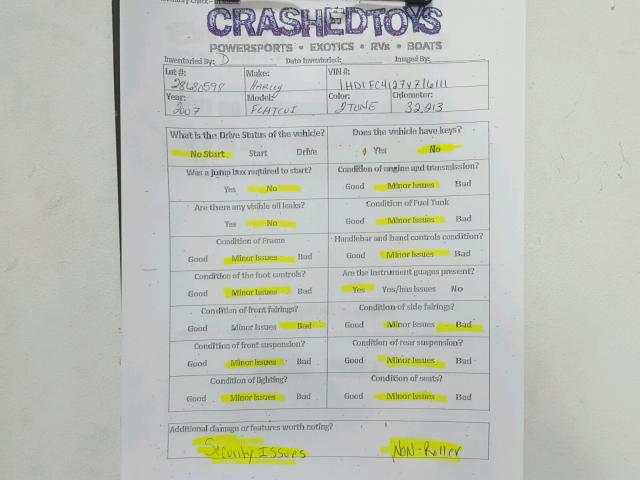 CRASHEDTOYS
POWERSPORTS • EXOTICS • RVs • BOATS
Inventoried By: D Date Inventoried: Imaged By:
Lot #: Make: VIN #:
28680598 HARLEY 1HD1FC4127Y716111
Year: Model: Color: Odometer:
2007 FLHTCUI 2TONE 32,213
What is the Drive Status of the vehicle? Does the vehicle have keys?
No Start Start Drive Yes No
Was a jump box required to start? Condition of engine and transmission?
Yes No Good Minor Issues Bad
Are there any visible oil leaks? Condition of Fuel Tank
Yes No Good Minor Issues Bad
Condition of Frame Handlebar and hand controls condition?
Good Minor Issues Bad Good Minor Issues Bad
Condition of the foot controls? Are the instrument guages present?
Good Minor Issues Bad Yes Yes/his Issues No
Condition of front fairings? Condition of side fairings?
Good Minor Issues Bad Good Minor Issues Bad
Condition of front suspension? Condition of rear suspension?
Good Minor Issues Bad Good Minor Issues Bad
Condition of lighting? Condition of seats?
Good Minor Issues Bad Good Minor Issues Bad
Additional damage or features worth noting?
Security Issues Non-Roller